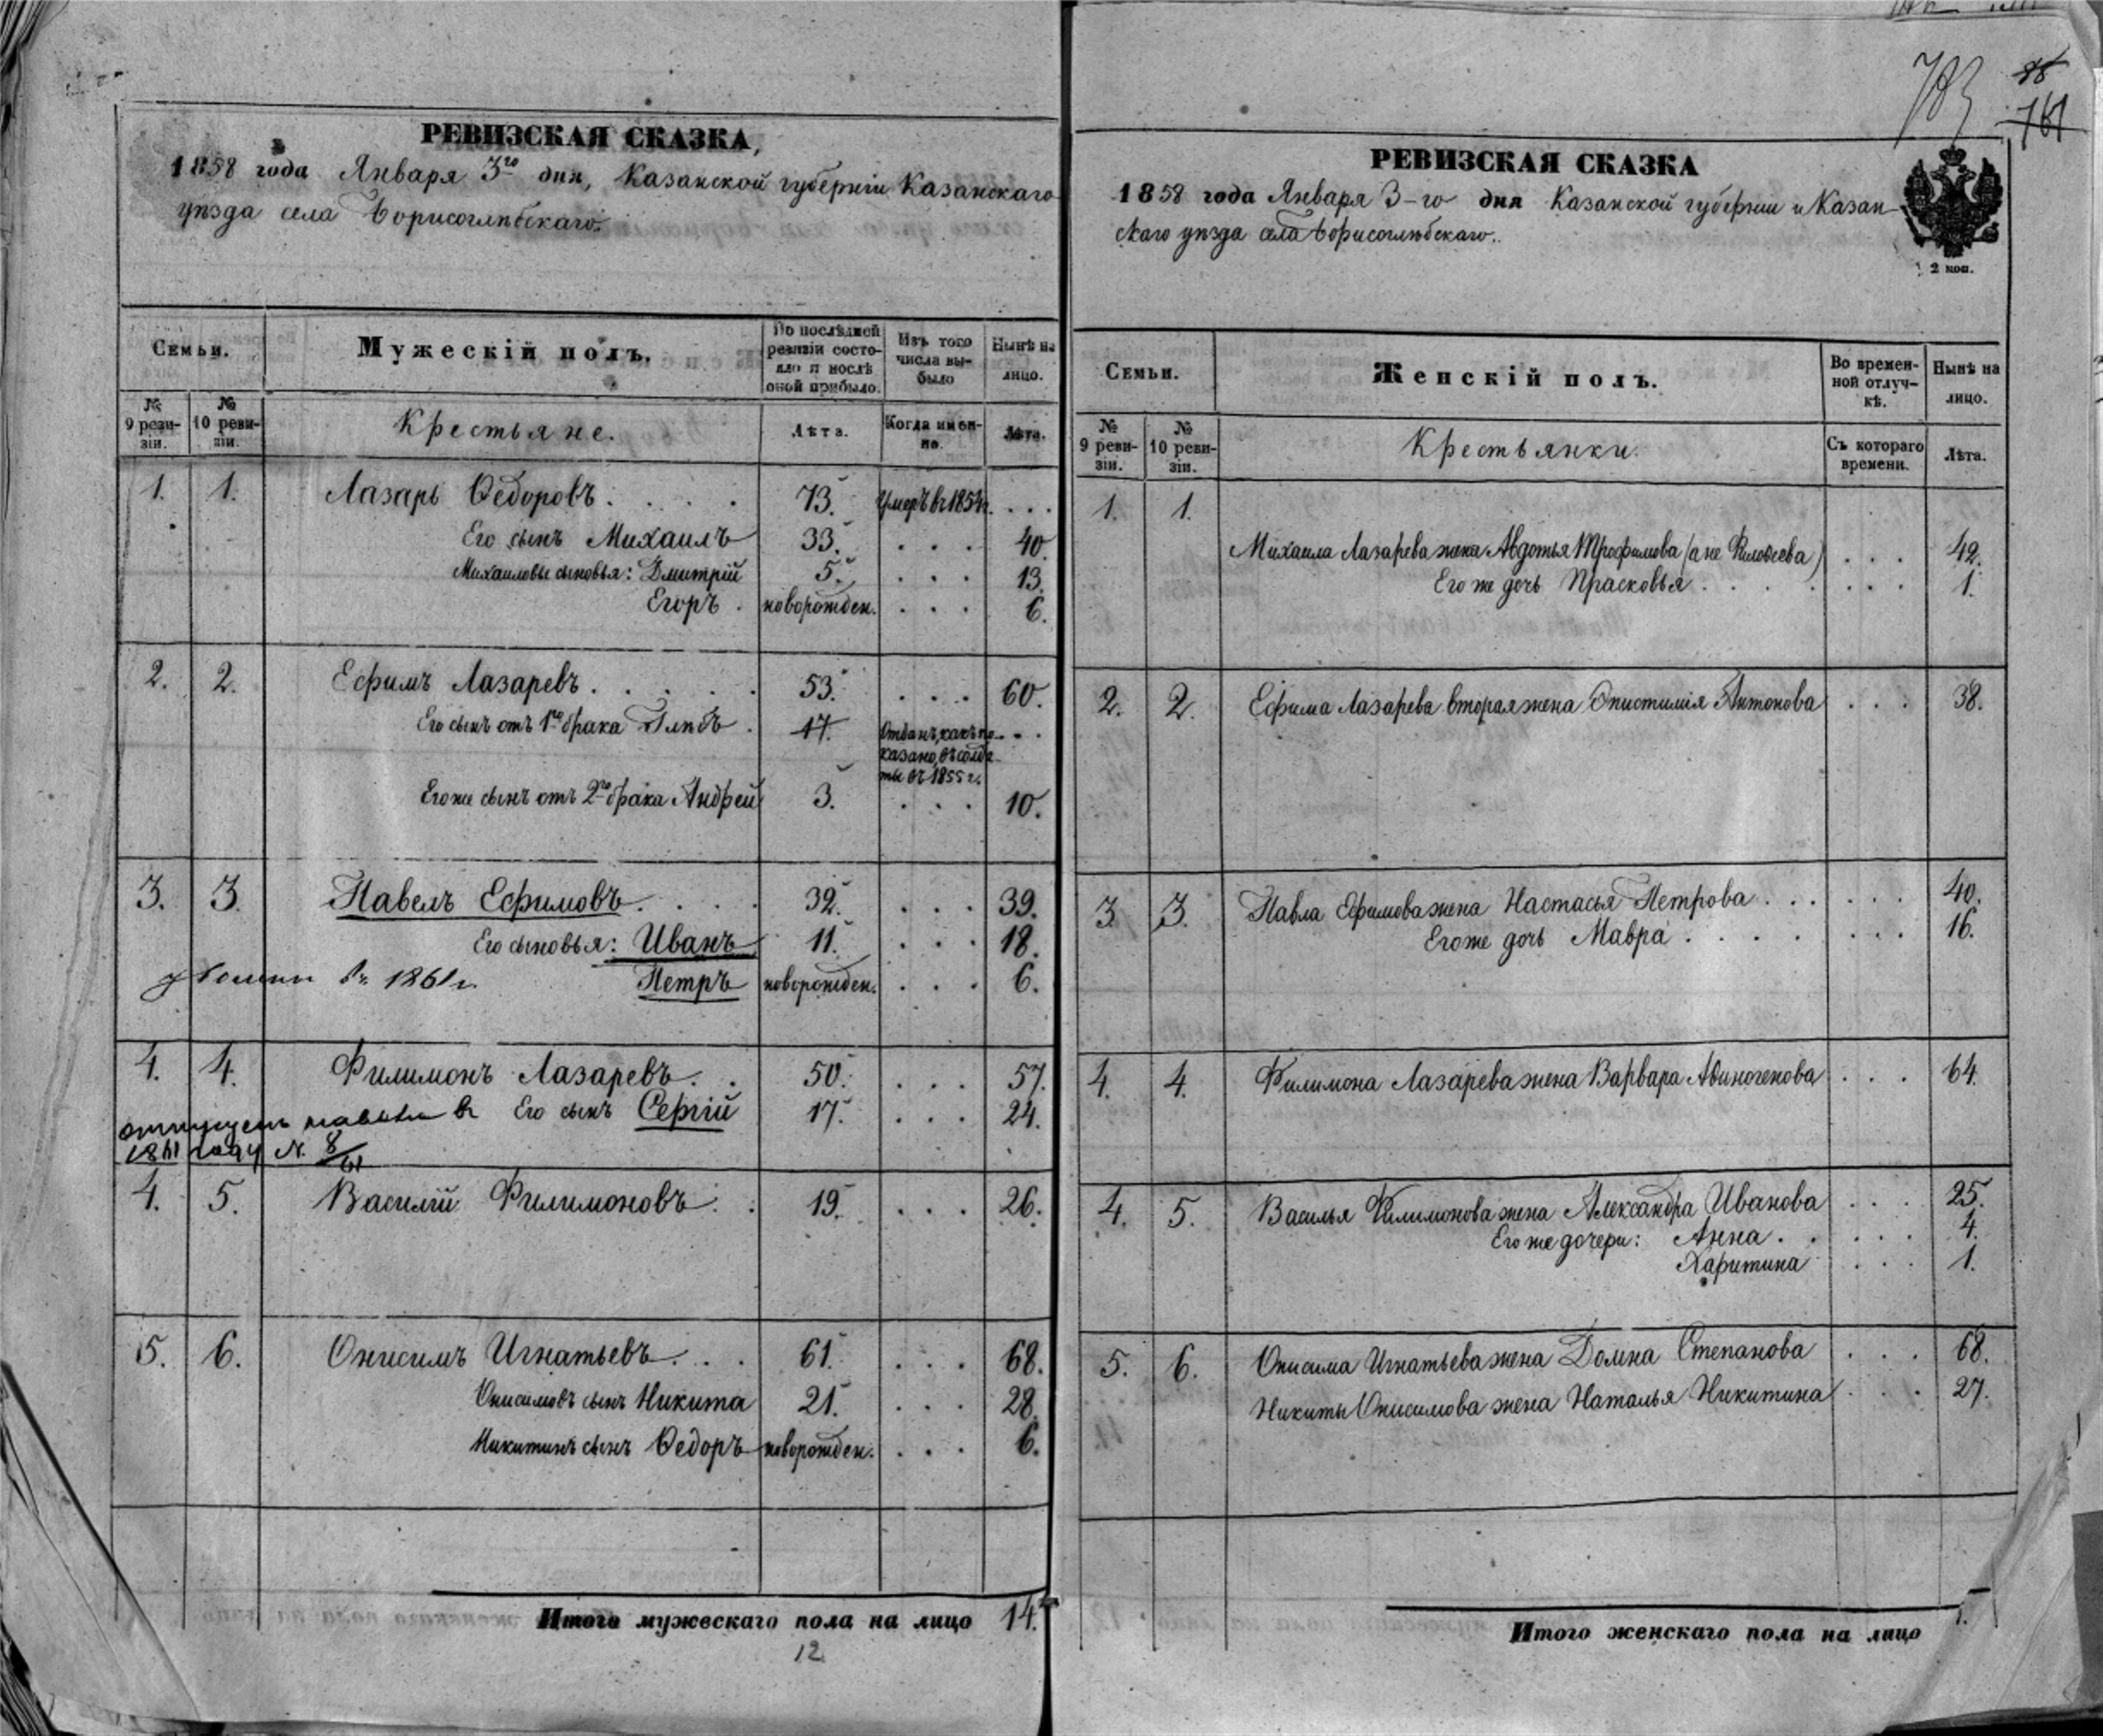 783 98
761
РЕВИЗСКАЯ СКАЗКА,
1858 года Января 3го дня, Казанской губерніи Казанскаго
уѣзда села Борисоглѣбскаго.
Семьи.
Мужескій полъ.
По послѣдней ревизіи состояло и послѣ оной прибыло.
Изъ того числа выбыло
Нынѣ на лицо.
№ 9 ревизіи.
№ 10 ревизіи.
Крестьяне.
Лѣта.
Когда именно.
Лѣта.
1. 1. Лазарь Ѳедоровъ . . . . 73. Умеръ въ 1854 г. . . .
Его сынъ Михаилъ 33. . . . 40.
Михаиловы сыновья: Дмитрій 5. . . . 13.
Егоръ . новорожден. . . . 6.
2. 2. Ефимъ Лазаревъ . . . . . 53. . . . 60.
Его сынъ отъ 1го брака Глѣбъ . 17. Отданъ, какъ по- . . .
казано, въ солда-
ты въ 1855 г.
Его же сынъ отъ 2го брака Андрей 3. . . . 10.
3. 3. Павелъ Ефимовъ . . . . 32. . . . 39.
Его сыновья: Иванъ 11. . . . 18.
въ 1861 г. Петръ новорожден. . . . 6.
4. 4. Филимонъ Лазаревъ . . 50. . . . 57.
отпущенъ въ Его сынъ Сергій 17. . . . 24.
1861 году № 8/61
4. 5. Василій Филимоновъ . . 19. . . . 26.
5. 6. Онисимъ Игнатьевъ . . . 61. . . . 68.
Онисимовъ сынъ Никита 21. . . . 28.
Никитинъ сынъ Ѳедоръ новорожден. . . . 6.
Итого мужескаго пола на лицо 14.
12
РЕВИЗСКАЯ СКАЗКА
1858 года Января 3-го дня Казанской губерніи и Казан-
скаго уѣзда села Борисоглѣбскаго.
2 коп.
Семьи.
Женскій полъ.
Во временной отлучкѣ.
Нынѣ на лицо.
№ 9 ревизіи.
№ 10 ревизіи.
Крестьянки.
Съ котораго времени.
Лѣта.
1. 1.
Михаила Лазарева жена Авдотья Трофимова (а не Филоѳеева) . . . 42.
Его же дочь Прасковья . . . . . . . 1.
2. 2. Ефима Лазарева вторая жена Опистимія Антонова . . . 38.
3. 3. Павла Ефимова жена Настасья Петрова . . . . . . 40.
Его же дочь Мавра . . . . . . . 16.
4. 4. Филимона Лазарева жена Варвара Аѳиногенова . . . 64.
4. 5. Василья Филимонова жена Александра Иванова . . . 25.
Его же дочери: Анна . . . . . 4.
Харитина . . . 1.
5. 6. Онисима Игнатьева жена Домна Степанова . . . 68.
Никиты Онисимова жена Наталья Никитина . . . 27.
Итого женскаго пола на лицо